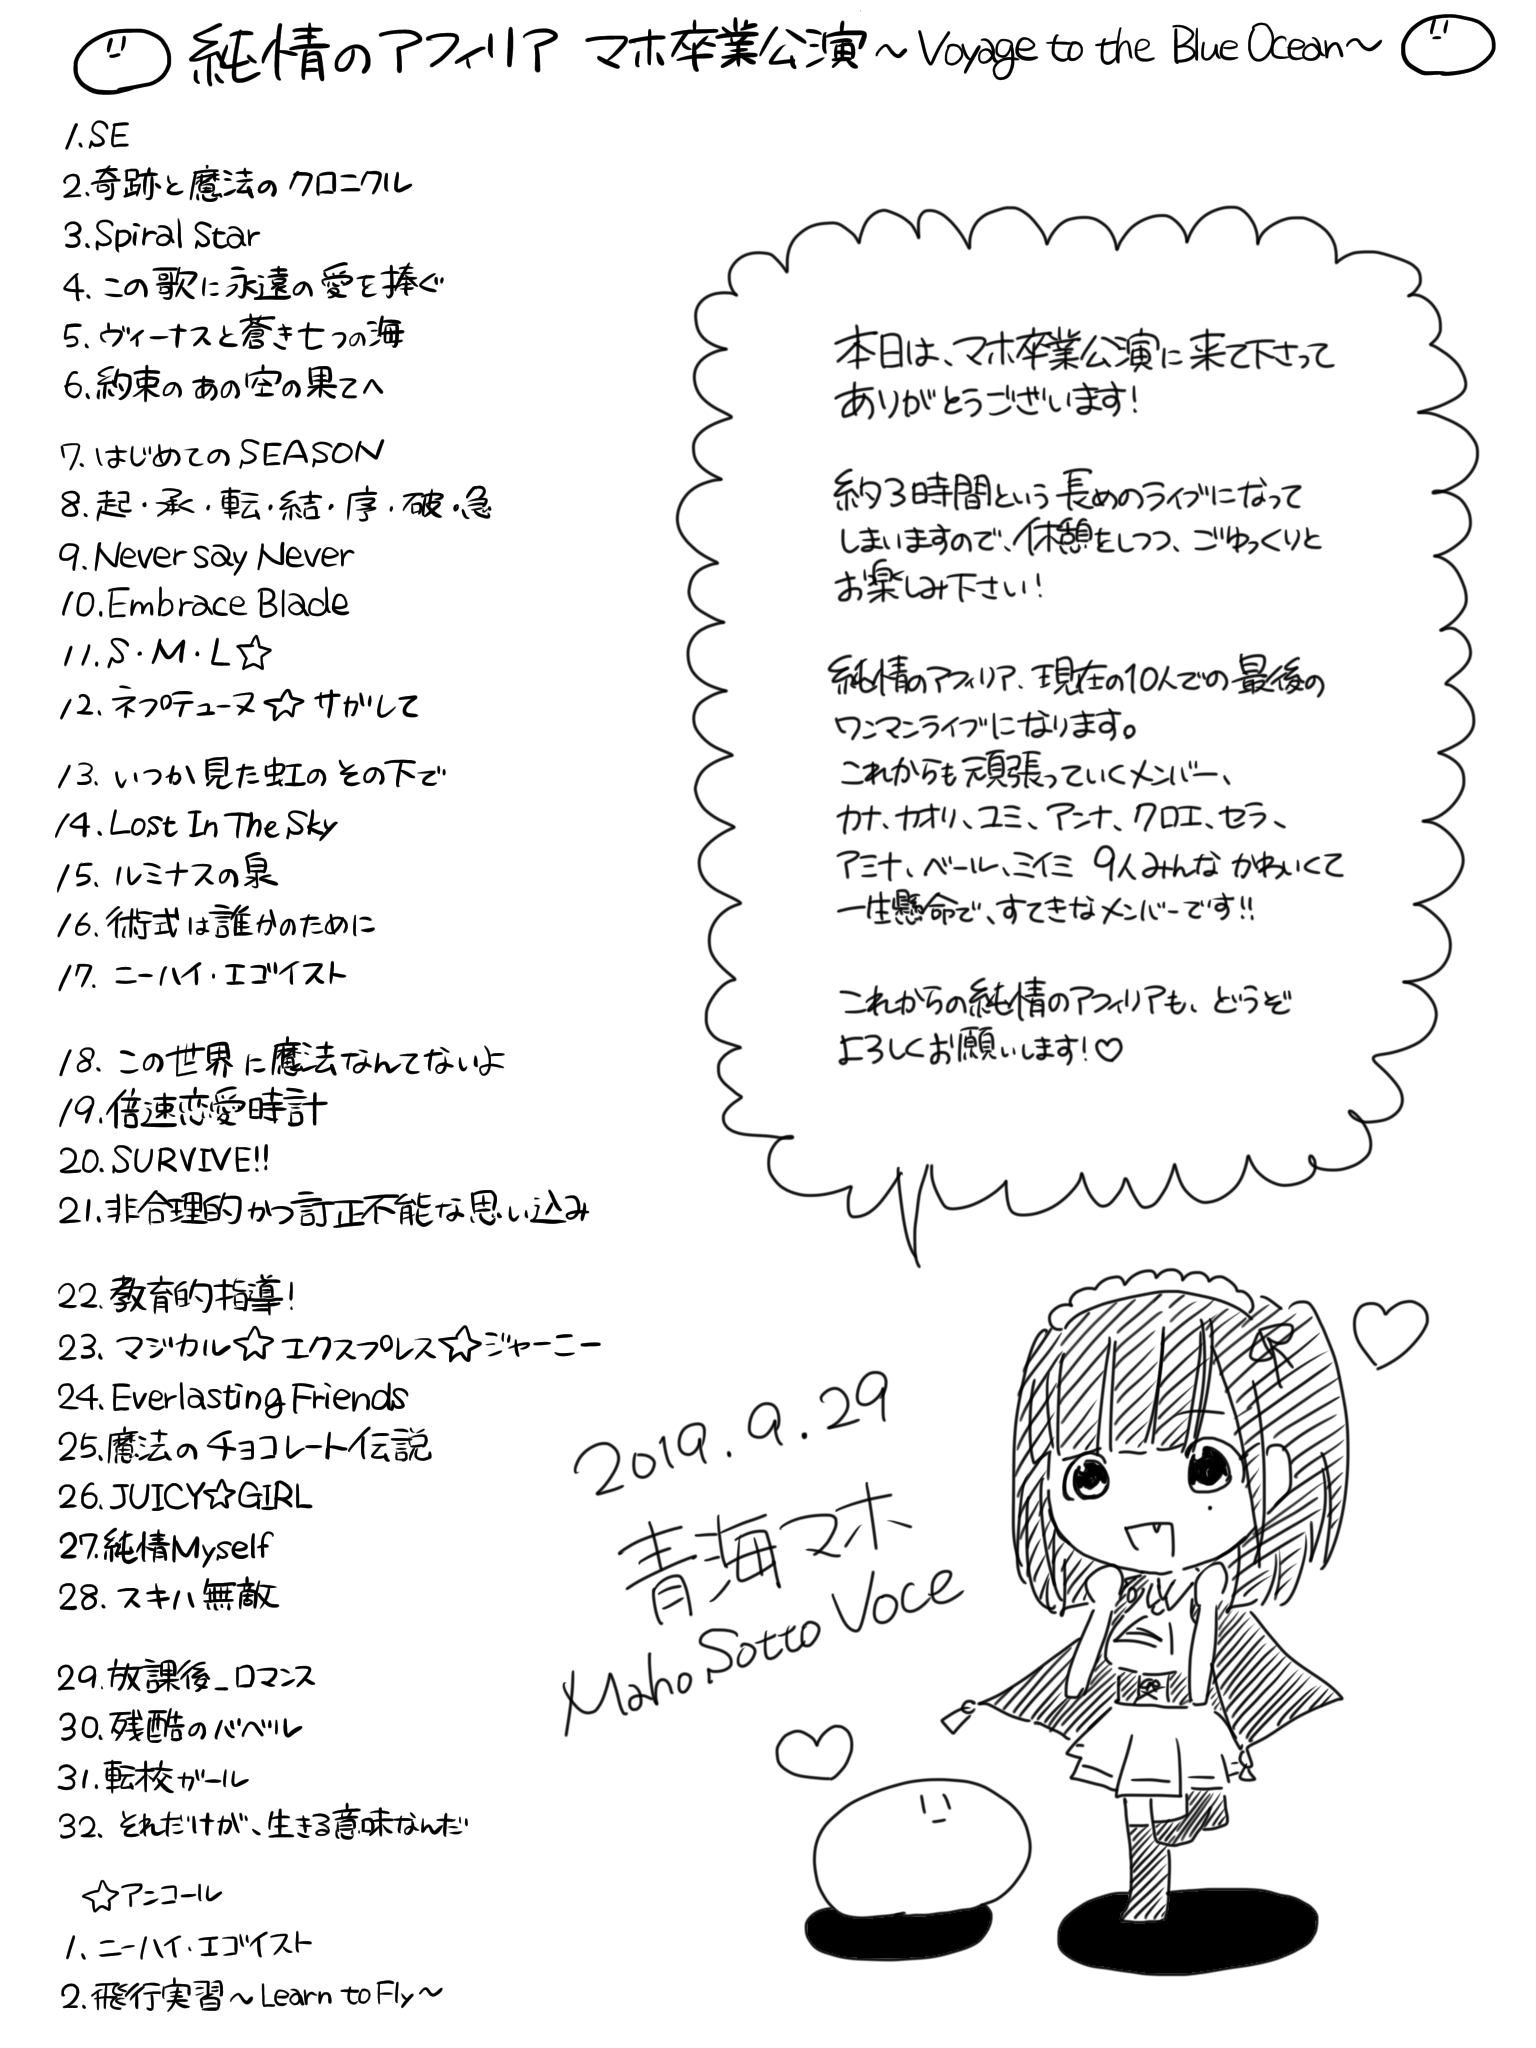 純情のアフィリア マホ卒業公演～Voyage to the Blue Ocean～
1.SE
2.奇跡と魔法のクロニクル
3.Spiral Star
4.この歌に永遠の愛を捧ぐ
5.ヴィーナスと蒼き七つの海
6.約束のあの空の果てへ
7.はじめてのSEASON
8.起・承・転・結・序・破・急
9.Never say Never
10.Embrace Blade
11.S・M・L☆
12.ネプテューヌ☆サガして
13.いつか見た虹のその下で
14.Lost In The Sky
15.ルミナスの泉
16.術式は誰かのために
17.ニーハイ・エゴイスト
18.この世界に魔法なんてないよ
19.倍速恋愛時計
20.SURVIVE!!
21.非合理的かつ訂正不能な思い込み
22.教育的指導!
23.マジカル☆エクスプレス☆ジャーニー
24.Everlasting Friends
25.魔法のチョコレート伝説
26.JUICY☆GIRL
27.純情Myself
28.スキハ無敵
29.放課後_ロマンス
30.残酷のバベル
31.転校ガール
32.それだけが、生きる意味なんだ
☆アンコール
1.ニーハイ・エゴイスト
2.飛行実習～Learn to Fly～
本日は、マホ卒業公演に来て下さって
ありがとうございます!
約3時間という長めのライブになって
しまいますので、休憩をしつつ、ごゆっくりと
お楽しみ下さい!
純情のアフィリア、現在の10人での最後の
ワンマンライブになります。
これからも頑張っていくメンバー、
カナ、カオリ、ユミ、アンナ、クロエ、セラ、
アミナ、ベール、ミイミ 9人みんなかわいくて
一生懸命で、すてきなメンバーです!!
これからの純情のアフィリアも、どうぞ
よろしくお願いします!♡
2019.9.29
青海マホ
Maho Sotto Voce